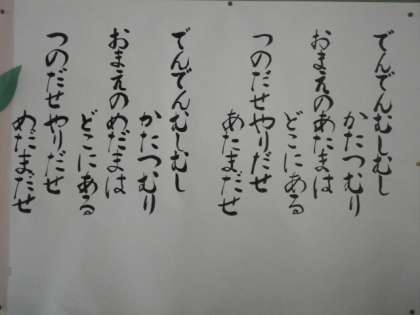 でんでんむしむし
かたつむり
おまえのあたまは
どこにある
つのだせやりだせ
あたまだせ
でんでんむしむし
かたつむり
おまえのめだまは
どこにある
つのだせやりだせ
めだまだせ